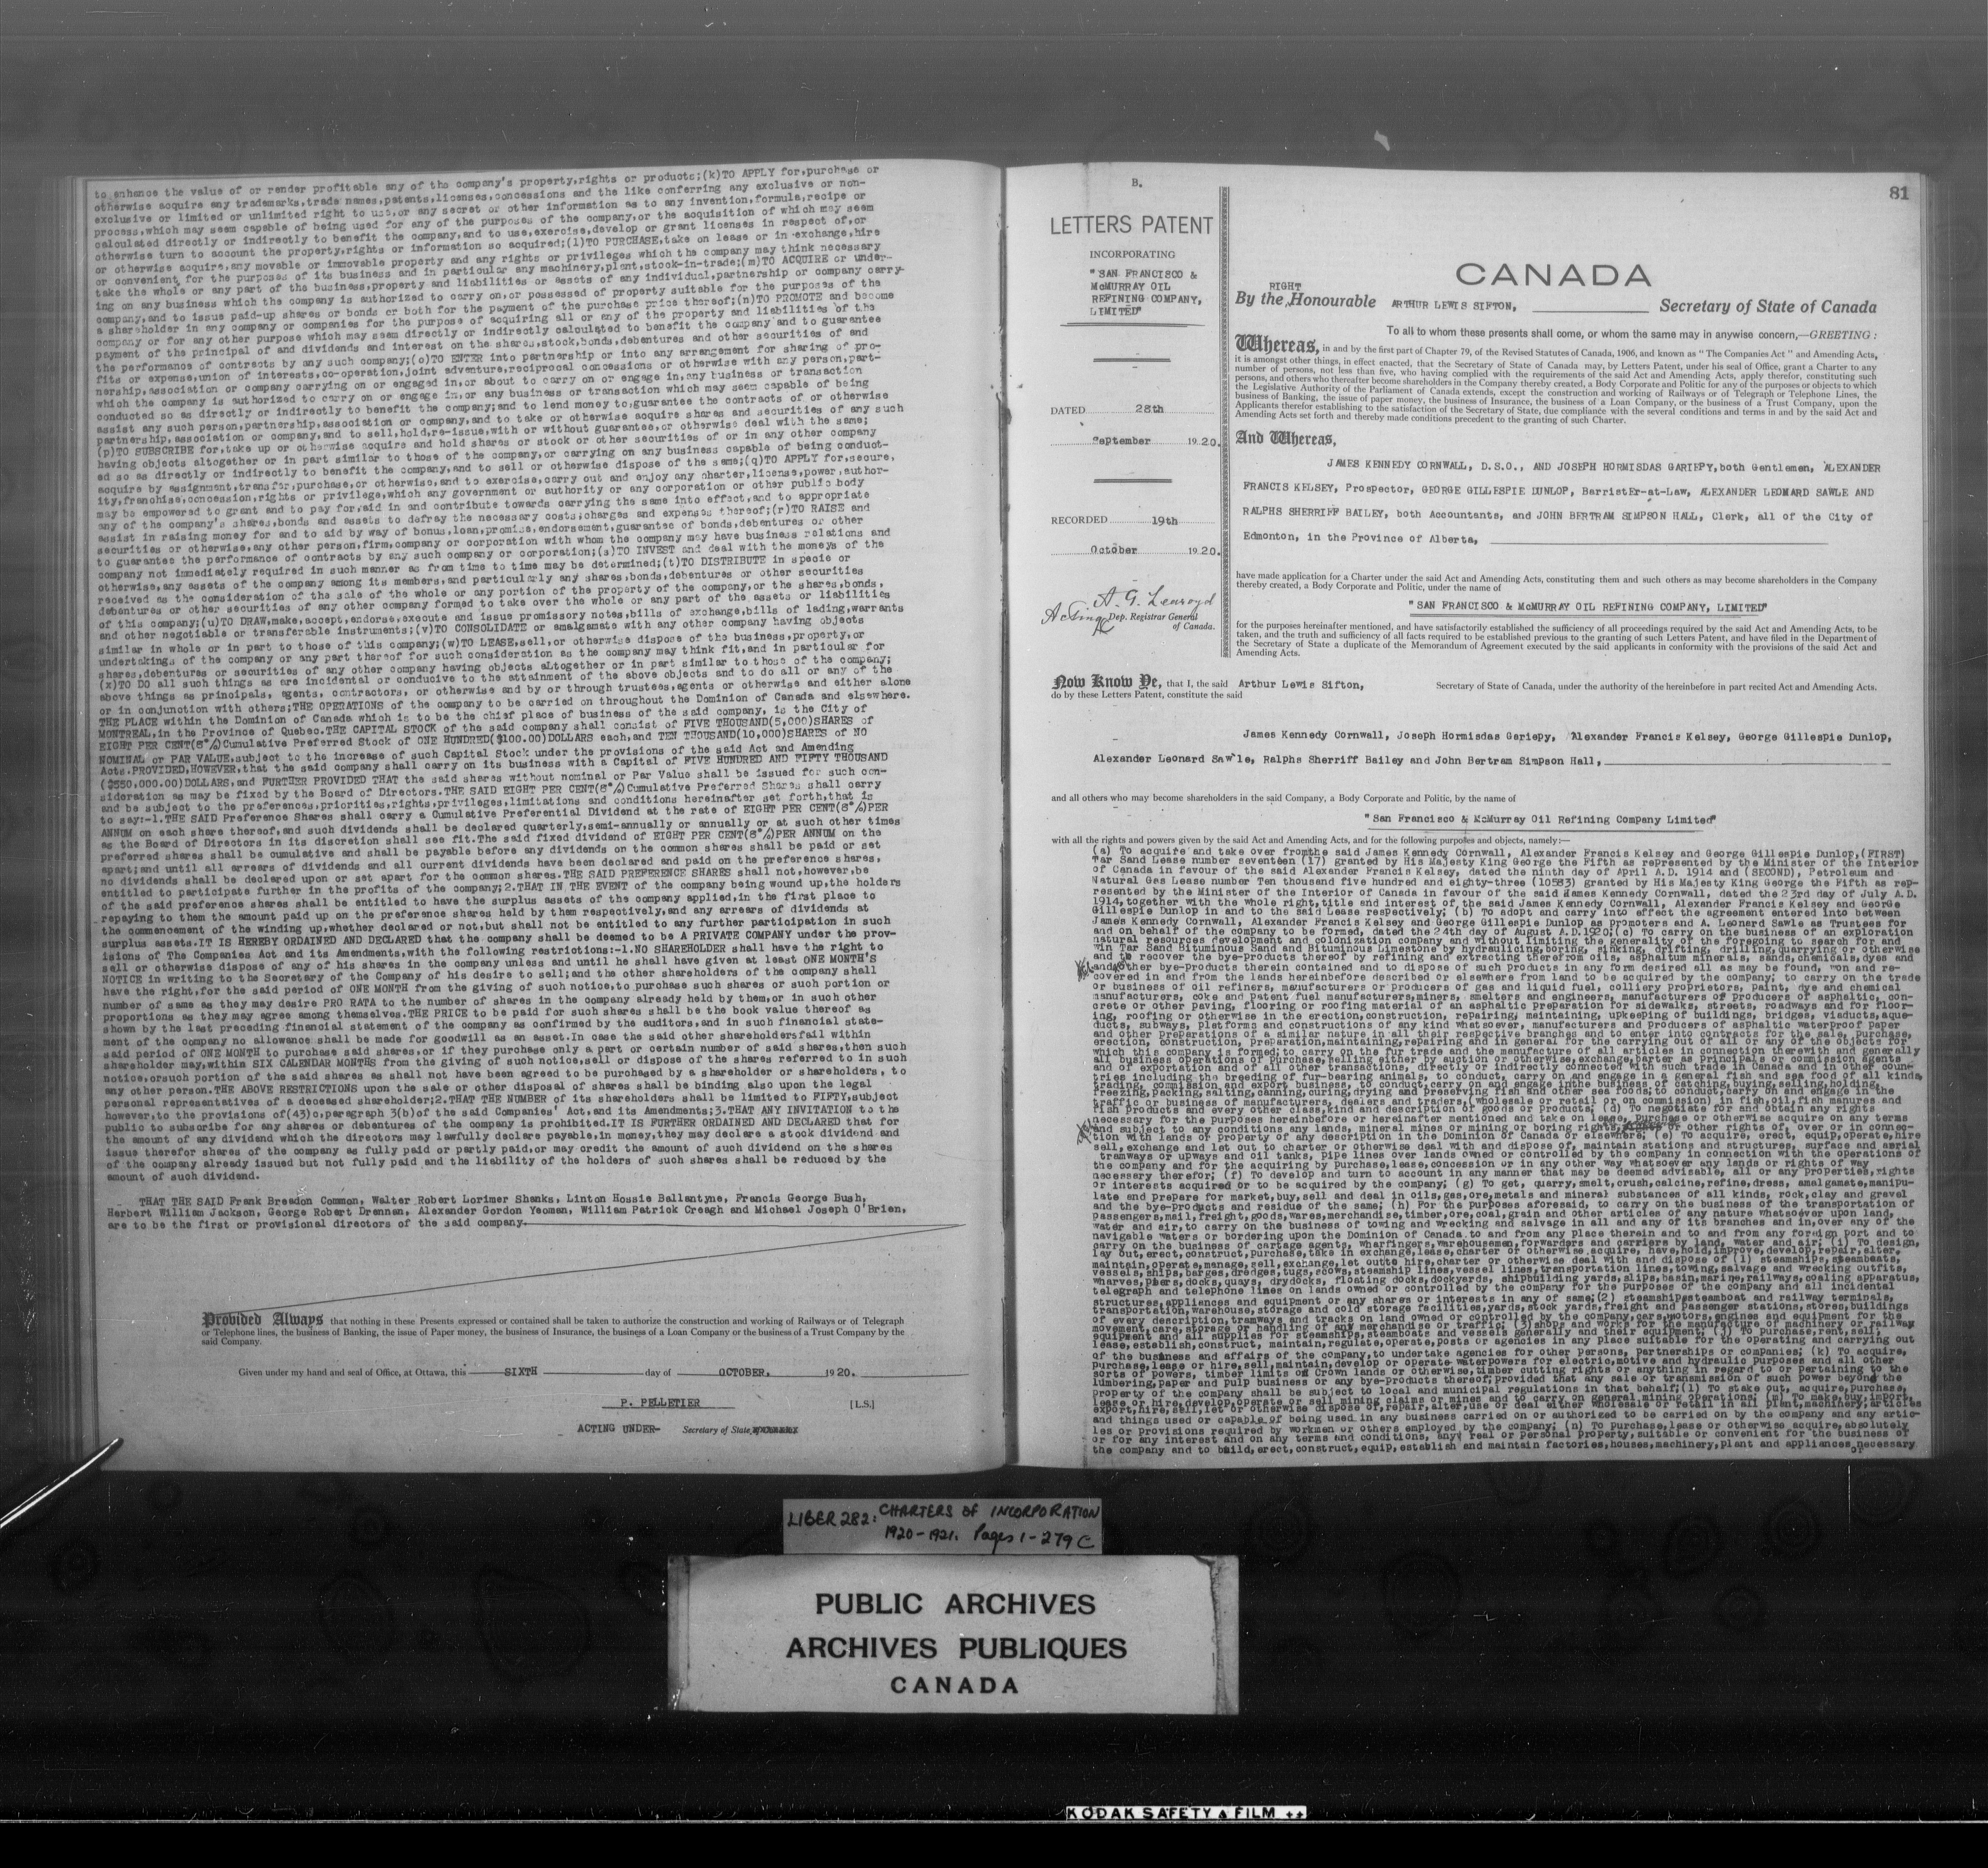 to enhance the value of or render profitable any of the company's property,rights or products;(k)TO APPLY for,purchase or
otherwise acquire any trademarks,trade names,patents,licenses,concessions and the like conferring any exclusive or non-
exclusive or limited or unlimited right to use,or any secret or other information as to any invention,formula,recipe or
process,which may seem capable of being used for any of the purposes of the company,or the acquisition of which may seem
calculated directly or indirectly to benefit the company,and to use,exercise,develop or grant licenses in respect of,or
otherwise turn to account the property,rights or information so acquired;(l)TO PURCHASE,take on lease or in exchange,hire
or otherwise acquire,any movable or immovable property and any rights or privileges which the company may think necessary
or convenient for the purposes of its business and in particular any machinery,plant,stock-in-trade;(m)TO ACQUIRE or under-
take the whole or any part of the business,property and liabilities or assets of any individual,partnership or company carry-
ing on any business which the company is authorized to carry on,or possessed of property suitable for the purposes of the
company,and to issue paid-up shares or bonds or both for the payment of the purchase price thereof;(n)TO PROMOTE and become
a shareholder in any company or companies for the purpose of acquiring all or any of the property and liabilities of the
company or for any other purpose which may seem directly or indirectly calculated to benefit the company and to guarantee
payment of the principal of and dividends and interest on the shares,stock,bonds,debentures and other securities of and
the performance of contracts by any such company;(o)TO ENTER into partnership or into any arrangement for sharing of pro-
fits or expense,union of interests,co-operation,joint adventure,reciprocal concessions or otherwise with any person,part-
nership,association or company carrying on or engaged in,or about to carry on or engage in,any business or transaction
which the company is authorized to carry on or engage in,or any business or transaction which may seem capable of being
conducted so as directly or indirectly to benefit the company;and to lend money to,guarantee the contracts of or otherwise
assist any such person,partnership,association or company,and to take or otherwise acquire shares and securities of any such
partnership,association or company,and to sell,hold,re-issue,with or without guarantee,or otherwise deal with the same;
(p)TO SUBSCRIBE for,take up or otherwise acquire and hold shares or stock or other securities of or in any other company
having objects altogether or in part similar to those of the company,or carrying on any business capable of being conduct-
ed so as directly or indirectly to benefit the company,and to sell or otherwise dispose of the same;(q)TO APPLY for,secure,
acquire by assignment,transfer,purchase,or otherwise,and to exercise,carry out and enjoy any charter,license,power,author-
ity,franchise,concession,rights or privilege,which any government or authority or any corporation or other public body
may be empowered to grant and to pay for,aid in and contribute towards carrying the same into effect,and to appropriate
any of the company's shares,bonds and assets to defray the necessary costs,charges and expenses thereof;(r)TO RAISE and
assist in raising money for and to aid by way of bonus,loan,promise,endorsement,guarantee of bonds,debentures or other
securities or otherwise,any other person,firm,company or corporation with whom the company may have business relations and
to guarantee the performance of contracts by any such company or corporation;(s)TO INVEST and deal with the moneys of the
company not immediately required in such manner as from time to time may be determined;(t)TO DISTRIBUTE in specie or
otherwise,any assets of the company among its members,and particularly any shares,bonds,debentures or other securities
received as the consideration of the sale of the whole or any portion of the property of the company,or the shares,bonds,
debentures or other securities of any other company formed to take over the whole or any part of the assets or liabilities
of this company;(u)TO DRAW,make,accept,endorse,execute and issue promissory notes,bills of exchange,bills of lading,warrants
and other negotiable or transferable instruments;(v)TO CONSOLIDATE or amalgamate with any other company having objects
similar in whole or in part to those of this company;(w)TO LEASE,sell,or otherwise dispose of the business,property,or
undertakings of the company or any part thereof for such consideration as the company may think fit,and in particular for
shares,debentures or securities of any other company having objects altogether or in part similar to those of the company;
(x)TO DO all such things as are incidental or conducive to the attainment of the above objects and to do all or any of the
above things as principals, agents, contractors, or otherwise and by or through trustees,agents or otherwise and either alone
or in conjunction with others;THE OPERATIONS of the company to be carried on throughout the Dominion of Canada and elsewhere.
THE PLACE within the Dominion of Canada which is to be the chief place of business of the said company, is the City of
MONTREAL,in the Province of Quebec.THE CAPITAL STOCK of the said company shall consist of FIVE THOUSAND(5,000)SHARES of
EIGHT PER CENT(8%)Cumulative Preferred Stock of ONE HUNDRED($100.00)DOLLARS each,and TEN THOUSAND(10,000)SHARES of NO
NOMINAL or PAR VALUE,subject to the increase of such Capital Stock under the provisions of the said Act and Amending
Acts.PROVIDED,HOWEVER,that the said company shall carry on its business with a Capital of FIVE HUNDRED AND FIFTY THOUSAND
($550,000.00)DOLLARS,and FURTHER PROVIDED THAT the said shares without nominal or Par Value shall be issued for such con-
sideration as may be fixed by the Board of Directors.THE SAID EIGHT PER CENT(8%)Cumulative Preferred Shares shall carry
and be subject to the preferences,priorities,rights,privileges,limitations and conditions hereinafter set forth,that is
to say:-1.THE SAID Preference Shares shall carry a Cumulative Preferential Dividend at the rate of EIGHT PER CENT(8%)PER
ANNUM on each share thereof,and such dividends shall be declared quarterly,semi-annually or annually or at such other times
as the Board of Directors in its discretion shall see fit.The said fixed dividend of EIGHT PER CENT(8%)PER ANNUM on the
preferred shares shall be cumulative and shall be payable before any dividends on the common shares shall be paid or set
apart;and until all arrears of dividends and all current dividends have been declared and paid on the preference shares,
no dividends shall be declared upon or set apart for the common shares.THE SAID PREFERENCE SHARES shall not,however,be
entitled to participate further in the profits of the company;2.THAT IN THE EVENT of the company being wound up,the holders
of the said preference shares shall be entitled to have the surplus assets of the company applied,in the first place to
repaying to them the amount paid up on the preference shares held by them respectively,and any arrears of dividends at
the commencement of the winding up,whether declared or not,but shall not be entitled to any further participation in such
surplus assets.IT IS HEREBY ORDAINED AND DECLARED that the company shall be deemed to be A PRIVATE COMPANY under the prov-
isions of The Companies Act and its Amendments,with the following restrictions:-1.NO SHAREHOLDER shall have the right to
sell or otherwise dispose of any of his shares in the company unless and until he shall have given at least ONE MONTH'S
NOTICE in writing to the Secretary of the Company of his desire to sell;and the other shareholders of the company shall
have the right,for the said period of ONE MONTH from the giving of such notice,to purchase such shares or such portion or
number of same as they may desire PRO RATA to the number of shares in the company already held by them,or in such other
proportions as they may agree among themselves.THE PRICE to be paid for such shares shall be the book value thereof as
shown by the last preceding financial statement of the company as confirmed by the auditors,and in such financial state-
ment of the company no allowance shall be made for goodwill as an asset.In case the said other shareholdersfail within
said period of ONE MONTH to purchase said shares,or if they purchase only a part or certain number of said shares,then such
shareholder may,within SIX CALENDAR MONTHS from the giving of such notice,sell or dispose of the shares referred to in such
notice,orsuch portion of the said shares as shall not have been agreed to be purchased by a shareholder or shareholders, to
any other person.THE ABOVE RESTRICTIONS upon the sale or other disposal of shares shall be binding also upon the legal
personal representatives of a deceased shareholder;2.THAT THE NUMBER of its shareholders shall be limited to FIFTY,subject
however,to the provisions of(43)c,paragraph 3(b)of the said Companies' Act,and its Amendments;3.THAT ANY INVITATION to the
public to subscribe for any shares or debentures of the company is prohibited.IT IS FURTHER ORDAINED AND DECLARED that for
the amount of any dividend which the directors may lawfully declare payable,in money,they may declare a stock dividend and
issue therefor shares of the company as fully paid or partly paid,or may credit the amount of such dividend on the shares
of the company already issued but not fully paid and the liability of the holders of such shares shall be reduced by the
amount of such dividend.
THAT THE SAID Frank Breadon Common, Walter Robert Lorimer Shanks, Linton Hossie Ballantyne, Francis George Bush,
Herbert William Jackson, George Robert Drennan, Alexander Gordon Yeoman, William Patrick Creagh and Michael Joseph O'Brien,
are to be the first or provisional directors of the said company
Provided Always that nothing in these Presents expressed or contained shall be taken to authorize the construction and working of Railways or of Telegraph
or Telephone lines, the business of Banking, the issue of Paper money, the business of Insurance, the business of a Loan Company or the business of a Trust Company by the
said Company.
Given under my hand and seal of Office, at Ottawa, this SIXTH day of OCTOBER, 1920.
P. PELLETIER [L.S.]
ACTING UNDER- Secretary of State
B.
81
LETTERS PATENT
INCORPORATING
"SAN FRANCISCO &
McMURRAY OIL
REFINING COMPANY,
LIMITED"
DATED 28th
September 1920.
RECORDED 19th
October 1920.
A. G. Learoyd
Acting Dep. Registrar General
of Canada.
CANADA
RIGHT
By the Honourable ARTHUR LEWIS SIFTON, Secretary of State of Canada
To all to whom these presents shall come, or whom the same may in anywise concern,—GREETING:
Whereas, in and by the first part of Chapter 79, of the Revised Statutes of Canada, 1906, and known as "The Companies Act" and Amending Acts,
it is amongst other things, in effect enacted, that the Secretary of State of Canada may, by Letters Patent, under his seal of Office, grant a Charter to any
number of persons, not less than five, who having complied with the requirements of the said Act and Amending Acts, apply therefor, constituting such
persons, and others who thereafter become shareholders in the Company thereby created, a Body Corporate and Politic for any of the purposes or objects to which
the Legislative Authority of the Parliament of Canada extends, except the construction and working of Railways or of Telegraph or Telephone Lines, the
business of Banking, the issue of paper money, the business of Insurance, the business of a Loan Company, or the business of a Trust Company, upon the
Applicants therefor establishing to the satisfaction of the Secretary of State, due compliance with the several conditions and terms in and by the said Act and
Amending Acts set forth and thereby made conditions precedent to the granting of such Charter.
And Whereas,
JAMES KENNEDY CORNWALL, D.S.O., AND JOSEPH HORMISDAS GARIEPY,both Gentlemen, ALEXANDER
FRANCIS KELSEY, Prospector, GEORGE GILLESPIE DUNLOP, BarristEr-at-Law, ALEXANDER LEONARD SAWLE AND
RALPHS SHERRIFF BAILEY, both Accountants, and JOHN BERTRAM SIMPSON HALL, Clerk, all of the City of
Edmonton, in the Province of Alberta,
have made application for a Charter under the said Act and Amending Acts, constituting them and such others as may become shareholders in the Company
thereby created, a Body Corporate and Politic, under the name of
"SAN FRANCISCO & McMURRAY OIL REFINING COMPANY, LIMITED"
for the purposes hereinafter mentioned, and have satisfactorily established the sufficiency of all proceedings required by the said Act and Amending Acts, to be
taken, and the truth and sufficiency of all facts required to be established previous to the granting of such Letters Patent, and have filed in the Department of
the Secretary of State a duplicate of the Memorandum of Agreement executed by the said applicants in conformity with the provisions of the said Act and
Amending Acts.
Now Know Ye, that I, the said Arthur Lewis Sifton, Secretary of State of Canada, under the authority of the hereinbefore in part recited Act and Amending Acts.
do by these Letters Patent, constitute the said
James Kennedy Cornwall, Joseph Hormisdas Gariepy, Alexander Francis Kelsey, George Gillespie Dunlop,
Alexander Leonard Sawle, Ralphs Sherriff Bailey and John Bertram Simpson Hall,
and all others who may become shareholders in the said Company, a Body Corporate and Politic, by the name of
"San Francisco & McMurray Oil Refining Company Limited"
with all the rights and powers given by the said Act and Amending Acts, and for the following purposes and objects, namely:—
(a) To acquire and take over fromthe said James Kennedy Cornwall, Alexander Francis Kelsey and George Gillespie Dunlop,(FIRST)
Tar Sand Lease number seventeen (17) granted by His Majesty King George the Fifth as represented by the Minister of the Interior
of Canada in favour of the said Alexander Francis Kelsey, dated the ninth day of April A.D. 1914 and (SECOND), Petroleum and
Natural Gas Lease number Ten thousand five hundred and eighty-three (10583) granted by His Majesty King George the Fifth as rep-
resented by the Minister of the Interior of Canada in favour of the said James Kennedy Cornwall, dated the 23rd day of July A.D.
1914,together with the whole right,title and interest of the said James Kennedy Cornwall, Alexander Francis Kelsey and George
Gillespie Dunlop in and to the said Lease respectively; (b) To adopt and carry into effect the agreement entered into between
James Kennedy Cornwall, Alexander Francis Kelsey and George Gillespie Dunlop as Promoters and A. Leonard Sawle as Trustees for
and on behalf of the company to be formed, dated the 24th day of August A.D.1920;(c) To carry on the business of an exploration
natural resources development and colonization company and without limiting the generality of the foregoing to search for and
win Tar Sand Bituminous Sand and Bituminous Limestone by hydraulicing,boring, sinking, drifting, drilling,quarrying or otherwise
and to recover the bye-products thereof by refining and extracting therefrom oils, asphaltum minerals, sands,chemicals,dyes and
and other bye-products therein contained and to dispose of such products in any form derired all as may be found, won and re-
covered in and from the lands hereinbefore described or elsewhere from land to be acquired by the company; to carry on the trade
or business of oil refiners, manufacturers or producers of gas and liquid fuel, colliery proprietors, paint, dye and chemical
manufacturers, coke and patent fuel manufacturers,miners, smelters and engineers, manufacturers of producers of asphaltic, con-
crete or other paving, flooring or roofing material of an asphaltic preparation for sidewalks, streets, roadways and for floor-
ing, roofing or otherwise in the erection,construction, repairing, maintaining, upkeeping of buildings, bridges, viaducts,aque-
ducts, subways, platforms and constructions of any kind whatsoever, manufacturers and producers of asphaltic waterproof paper
and other preparations of a similar nature in all their respective branches and to enter into contracts for the sale, purchase,
erection, construction, preparation,maintaining,repairing and in general for the carrying out of all or any of the objects for
which this company is formed; to carry on the fur trade and the manufacture of all articles in connection therewith and generally
all business operations of purchase,selling either by auction or otherwise,exchange,barter as principals or commission agents
and of exportation and of all other transactions, directly or indirectly connected with such trade in Canada and in other coun-
tries including the breeding of fur-bearing animals, to conduct, carry on and engage in a general fish and sea food of all kinds,
trading, commission and export business, to conduct,carry on and engage inthe business of catching,buying,selling,holding,
freezing,packing,salting,canning,curing,drying and preserving fish and other sea foods;to conduct,carry on and engage in the
traffic or business of manufacturers, dealers and traders,(wholesale or retail or on commission) in fish,oil,fish manures and
fish products and every other class,kind and description of goods or products; (d) To negotiate for and obtain any rights
necessary for the purposes hereinbefore or hereinafter mentioned and take on lease, purchase or otherwise acquire on any terms
and subject to any conditions any lands, mineral mines or mining or boring rights, or other rights of, over or in connec-
tion with lands or property of any description in the Dominion of Canada or elsewhere; (e) To acquire, erect, equip,operate,hire
sell,exchange and let out to charter or otherwise deal with and dispose of, maintain stations and structures, surface and aerial
tramways or upways and oil tanks, pipe lines over lands owned or controlled by the company in connection with the operations of
the company and for the acquiring by purchase,lease,concession or in any other way whatsoever any lands or rights of way
necessary therefor; (f) To develop and turn to account in any manner that may be deemed advisable, all or any properties,rights
or interests acquired or to be acquired by the company; (g) To get, quarry,smelt,crush,calcine,refine,dress, amalgamate,manipu-
late and prepare for market,buy,sell and deal in oils,gas,ore,metals and mineral substances of all kinds, rock,clay and gravel
and the bye-products and residue of the same; (h) For the purposes aforesaid, to carry on the business of the transportation of
passengers,mail,freight,goods,wares,merchandise,timber,ore,coal,grain and other articles of any nature whatsoever upon land,
water and air,to carry on the business of towing and wrecking and salvage in all and any of its branches and in,over any of the
navigable waters or bordering upon the Dominion of Canada to and from any place therein and to and from any foreign port and to
carry on the business of cartage agents, wharfingers,warehousemen,forwarders and carriers by land, water and air; (i) To design,
lay out,erect,construct,purchase,take in exchange,lease,charter or otherwise acquire, have,hold,improve,develop,repair,alter,
maintain,operate,manage,sell,exchange,let outto hire,charter or otherwise deal with and dispose of (1) steamships,steamboats,
vessels,ships,barges,dredges,tugs,scows,steamship lines,vessel lines,transportation lines,towing,salvage and wrecking outfits,
wharves,piers,docks,quays, drydocks, floating docks,dockyards, shipbuilding yards,slips,basin,marine,railways,coaling apparatus,
telegraph and telephone lines on lands owned or controlled by the company for the purposes of the company and all incidental
structures,appliances and equipment or any shares or interests in any of same;(2) steamship,steamboat and railway terminals,
transportation,warehouse,storage and cold storage facilities,yards,stock yards,freight and passenger stations,stores,buildings
of every description,tramways and tracks on land owned or controlled by the company,cars,motors,engines and equipment for the
movement,care,storage or handling of any merchandise or traffic; (3)shops and works for the manufacture of machinery or railway
equipment and all supplies for steamships,steamboats and vessels generally and their equipment; (j) To purchase,rent,sell,
lease,establish,construct, maintain,regulate,operate,posts or agencies in any place suitable for the operating and carrying out
of the business and affairs of the company,to undertake agencies for other persons, partnerships or companies; (k) To acquire,
purchase,lease or hire,sell,maintain,develop or operate waterpowers for electric,motive and hydraulic purposes and all other
sorts of powers, timber limits on Crown lands or otherwise,timber cutting rights or anything in regard to or pertaining to the
lumbering,paper and pulp business or any bye-products thereof;provided that any sale or transmission of such power beyond the
property of the company shall be subject to local and municipal regulations in that behalf;(l) To stake out, acquire,purchase,
lease or hire,develop,operate or sell mining claims or mines and to carry on general mining operations; (m) To make,buy,import,
export,hire,sell,let or otherwise dispose of,repair,alter,use or deal either wholesale or retail in all plant,machinery,articles
and things used or capable of being used in any business carried on or authorized to be carried on by the company and any artic-
les or provisions required by workmen or others employed by the company; (n) To purchase,lease or otherwise acquire,absolutely
or for any interest and on any terms and conditions, any real or personal property,suitable or convenient for the business of
the company and to build,erect,construct,equip,establish and maintain factories,houses,machinery,plant and appliances,necessary
or
LIBER 282: CHARTERS OF INCORPORATION
1920-1921. Pages 1-279 C
PUBLIC ARCHIVES
ARCHIVES PUBLIQUES
CANADA
KODAK SAFETY FILM